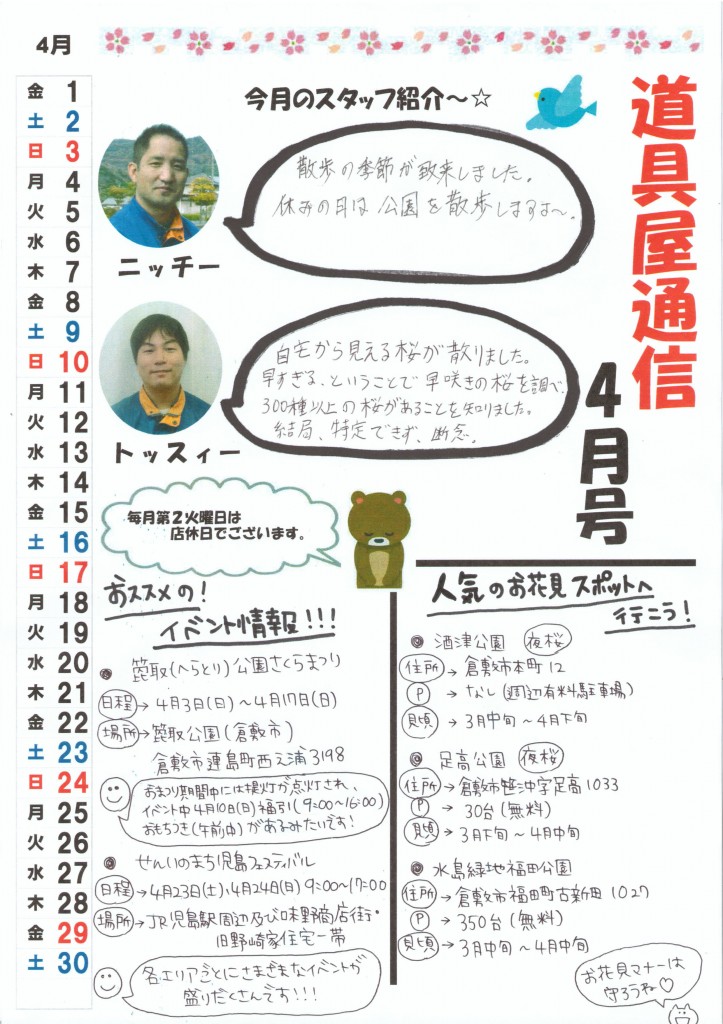 4月
金 1
土 2
日 3
月 4
火 5
水 6
木 7
金 8
土 9
日 10
月 11
火 12
水 13
木 14
金 15
土 16
日 17
月 18
火 19
水 20
木 21
金 22
土 23
日 24
月 25
火 26
水 27
木 28
金 29
土 30
道具屋通信
4月号
今月のスタッフ紹介～☆
散歩の季節が致来しました。
休みの日は公園を散歩しますよ～。
ニッチー
自宅から見える桜が散りました。
早すぎる、ということで早咲きの桜を調べ、
300種以上の桜があることを知りました。
結局、特定できず、断念。
トッスィー
毎月第2火曜日は
店休日でございます。
おススメの！
イベント情報!!!
箆取(へらとり)公園さくらまつり
日程→4月3日(日)～4月17日(日)
場所→箆取公園(倉敷市)
倉敷市連島町西之浦3198
おまつり期間中には提灯が点灯され、
イベント中4月10日(日)福引(9:00～16:00)
おもちつき(午前中)があるみたいです!
せんいのまち児島フェスティバル
日程→4月23日(土)・4月24日(日)9:00～17:00
場所→JR児島駅周辺及び味野商店街・
旧野崎家住宅一帯
各エリアごとにさまざまなイベントが
盛りだくさんです!!!
人気のお花見スポットへ
行こう!
酒津公園 夜桜
住所→倉敷市本町12
P→なし(週辺有料駐車場)
見頃→3月中旬～4月下旬
足高公園 夜桜
住所→倉敷市笹沖字足高1033
P→30台(無料)
見頃→3月下旬～4月中旬
水島緑地福田公園
住所→倉敷市福田町古新田1027
P→350台(無料)
見頃→3月中旬～4月中旬
お花見マナーは
守ろうね♡